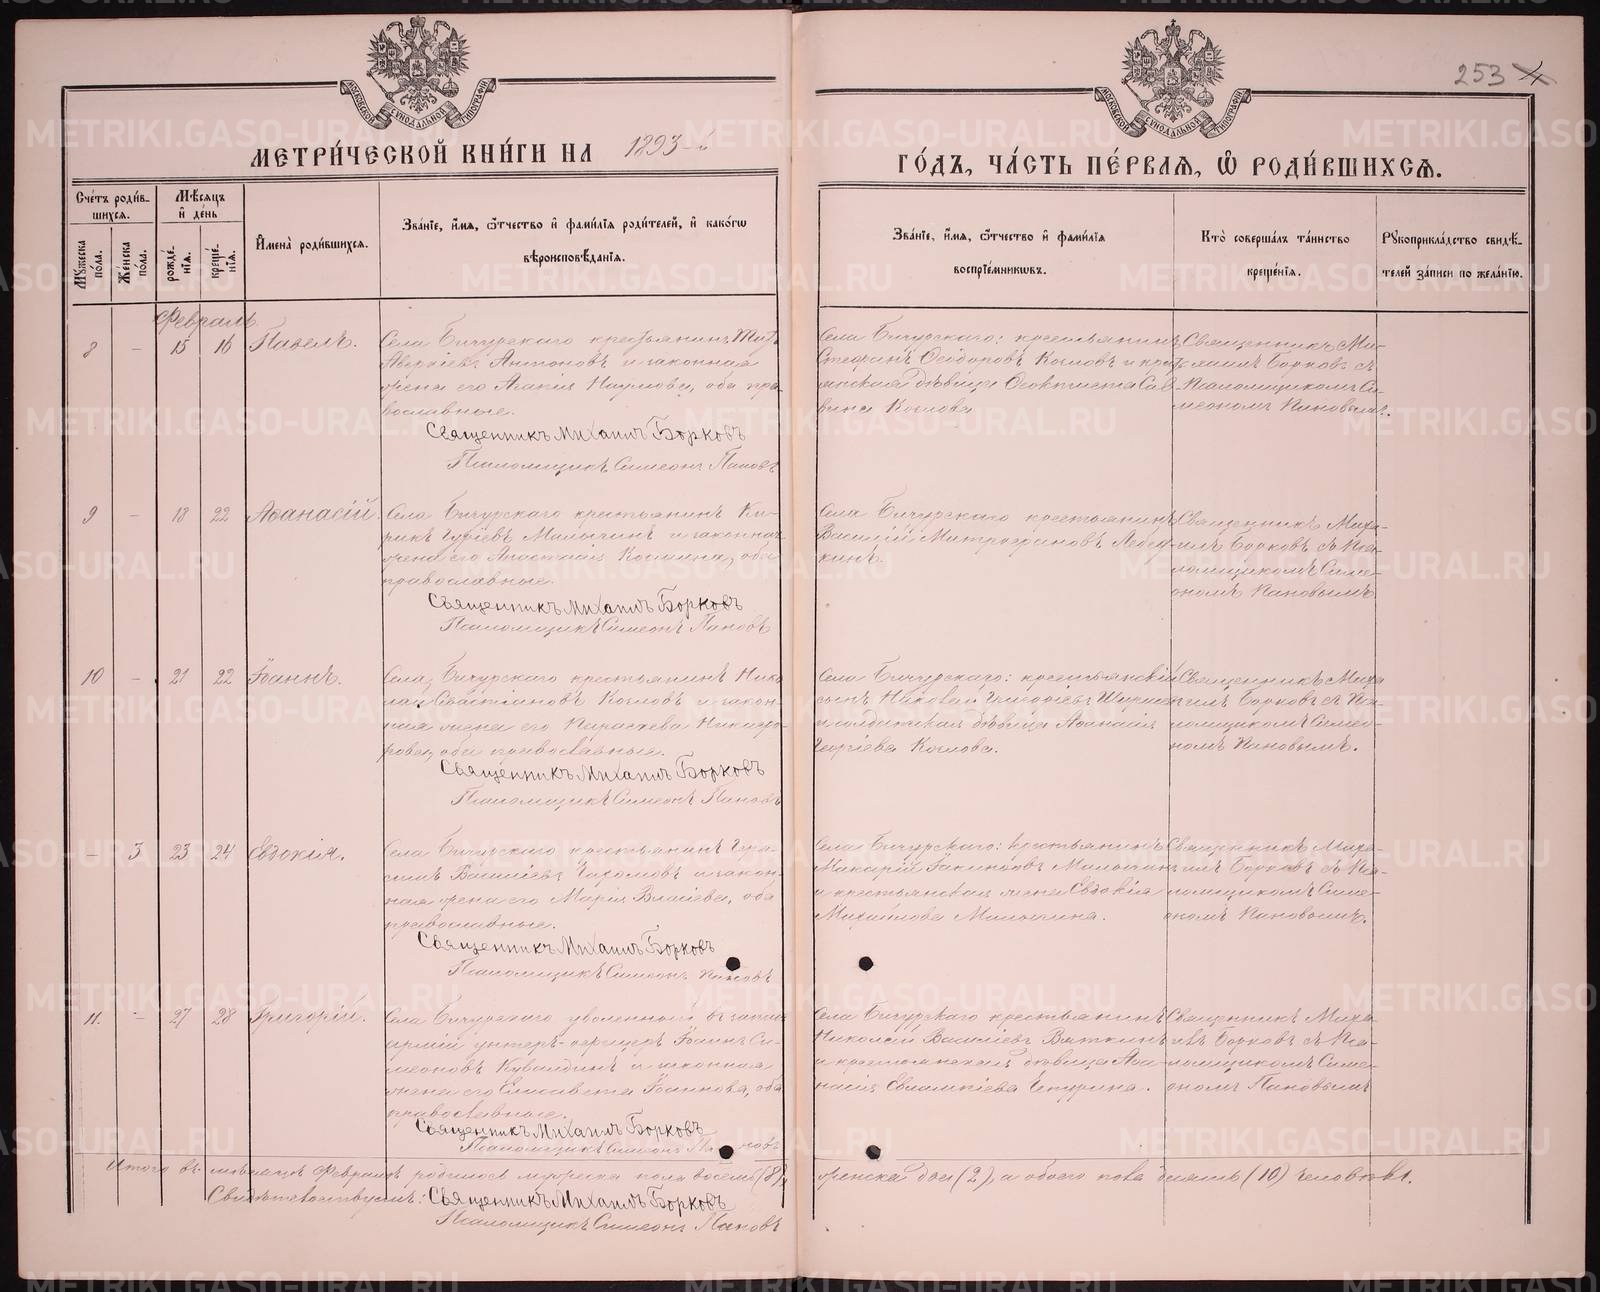 253 4
МЕТРИ́ЧЕСКОЙ КНИ́ГИ НА 1893-й ГО́ДЪ, ЧА́СТЬ ПЕ́РВАЯ, Ѡ РОДИ́ВШИХСЯ.
Сче́тъ роди́в-
шихся.
Мꙋжеска по́ла.
Же́нска по́ла.
Мѣ́сяцъ
и҆ де́нь
рожде́-
нїя.
креще́-
нїя.
И҆мена̀ роди́вшихся.
Зва́нїе, и҆́мя, ѻ҆́тчество и҆ фами́лїя роди́телей, и҆ како́гѡ
вѣроисповѣ́данїя.
Зва́нїе, и҆́мя, ѻ҆́тчество и҆ фами́лїя
воспрїе́мникѡвъ.
Кто̀ соверша́лъ та́инство
креще́нїя.
Рꙋкоприкла́дство свидѣ́-
телей за́писи по жела́нїю.
Февраль
8 – 15 16 Павелъ.
Села Бичурскаго крестьянинъ Титъ
Аверкіевъ Антоновъ и законная
жена его Агапія Наумова, оба пра-
вославные.
Священникъ Михаилъ Борковъ
Псаломщикъ Симеонъ Пановъ
Села Бичурскаго: крестьянинъ
Стефанъ Ѳеодоровъ Козловъ и кресть-
янская дѣвица Ѳеоктиста Сав-
вина Козлова
Священникъ Ми-
хаилъ Борковъ съ
Псаломщикомъ Си-
меономъ Пановымъ.
9 – 18 22 Аѳанасій.
Села Бичурскаго крестьянинъ Ки-
рикъ Гуріевъ Малыгинъ и законная
жена его Анастасія Козмина, оба
православные.
Священникъ Михаилъ Борковъ
Псаломщикъ Симеонъ Пановъ
Села Бичурскаго крестьянинъ
Василій Митрофановъ Лебед-
кинъ.
Священникъ Миха-
илъ Борковъ съ Пса-
ломщикомъ Симе-
ономъ Пановымъ
10 – 21 22 Іоаннъ.
Села Бичурскаго крестьянинъ Нико-
лай Савастіановъ Козловъ и закон-
ная жена его Параскева Никифо-
рова, оба православные.
Священникъ Михаилъ Борковъ
Псаломщикъ Симеонъ Пановъ
Села Бичурскаго: крестьянскій
сынъ Николай Григоріевъ
и солдатская дѣвица Аѳанасія
Георгіева Козлова.
Священникъ Миха-
илъ Борковъ съ Пса-
ломщикомъ Симео-
номъ Пановымъ.
– 3 23 24 Евдокія.
Села Бичурскаго крестьянинъ Гера-
симъ Василіевъ Пахомовъ и закон-
ная жена его Марія Власіева, оба
православные.
Священникъ Михаилъ Борковъ
Псаломщикъ Симеонъ Пановъ
Села Бичурскаго: крестьянинъ
Макарій Іакинѳовъ Малыгинъ
и крестьянская жена Евдокія
Михайлова Малыгина.
Священникъ Миха-
илъ Борковъ съ Пса-
ломщикомъ Симе-
ономъ Пановымъ.
11. – 27 28 Григорій.
Села Бичурскаго уволенный въ запасъ
арміи унтеръ-офицеръ Іоаннъ Си-
меоновъ Кувалдинъ и законная
жена его Елисавета Іоаннова, оба
православные.
Священникъ Михаилъ Борковъ
Псаломщикъ Симеонъ Пановъ
Села Бичурскаго крестьянинъ
Николай Василіевъ Вяткинъ
и крестьянская дѣвица Аѳа-
насія Евлампіева Чепурина.
Священникъ Миха-
илъ Борковъ съ Пса-
ломщикомъ Симе-
ономъ Пановымъ
Итого въ мѣсяцѣ Февралѣ родилось мужеска пола восемь (8), женска два (2), а обоего пола десять (10) человѣкъ.
Свидѣтельствуемъ: Священникъ Михаилъ Борковъ
Псаломщикъ Симеонъ Пановъ